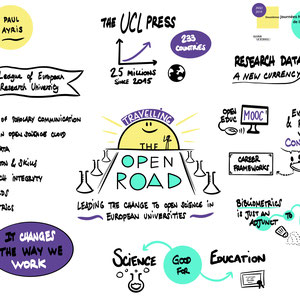 PAUL
AYRIS
THE UCL PRESS
233
COUNTRIES
2.5 MILLIONS
SINCE 2015
League of European
Research University
OF SCHOLARLY COMMUNICATION
N OPEN SCIENCE CLOUD
ATA
ON & SKILLS
CH INTEGRITY
DS
TRICS
IT CHANGES
THE WAY WE
WORK
TRAVELLING
THE
OPEN
ROAD
LEADING THE CHANGE TO OPEN SCIENCE IN
EUROPEAN UNIVERSITIES
SCIENCE
GOOD
FOR
EDUCATION
RESEARCH DATA
A NEW CURRENCY
OPEN
EDUC
MOOC
CAREER
FRAMEWORKS
BIBLIOMETRICS
IS JUST AN
ADJUNCT
TO